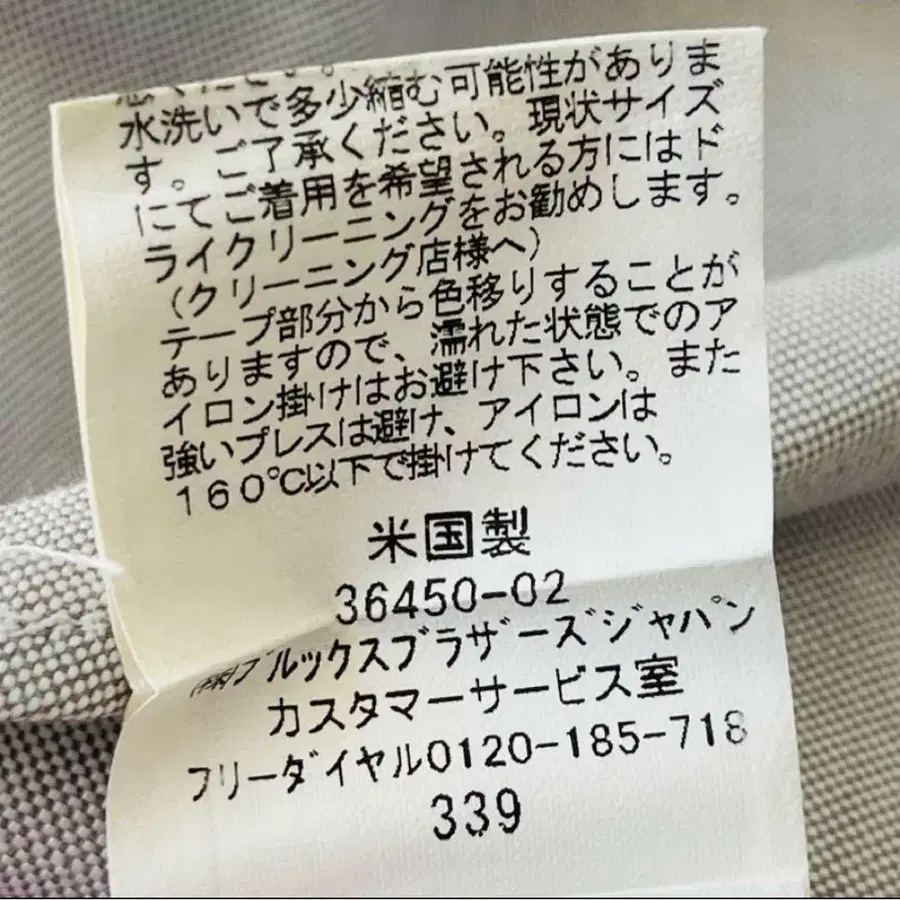 ください。
水洗いで多少縮む可能性がありま
す。ご了承ください。現状サイズ
にてご着用を希望される方にはド
ライクリーニングをお勧めします。
(クリーニング店様へ)
テープ部分から色移りすることが
ありますので、濡れた状態でのア
イロン掛けはお避け下さい。また
強いプレスは避け、アイロンは
160℃以下で掛けてください。
米国製
36450-02
(株)ブルックスブラザーズジャパン
カスタマーサービス室
フリーダイヤル0120-185-718
339